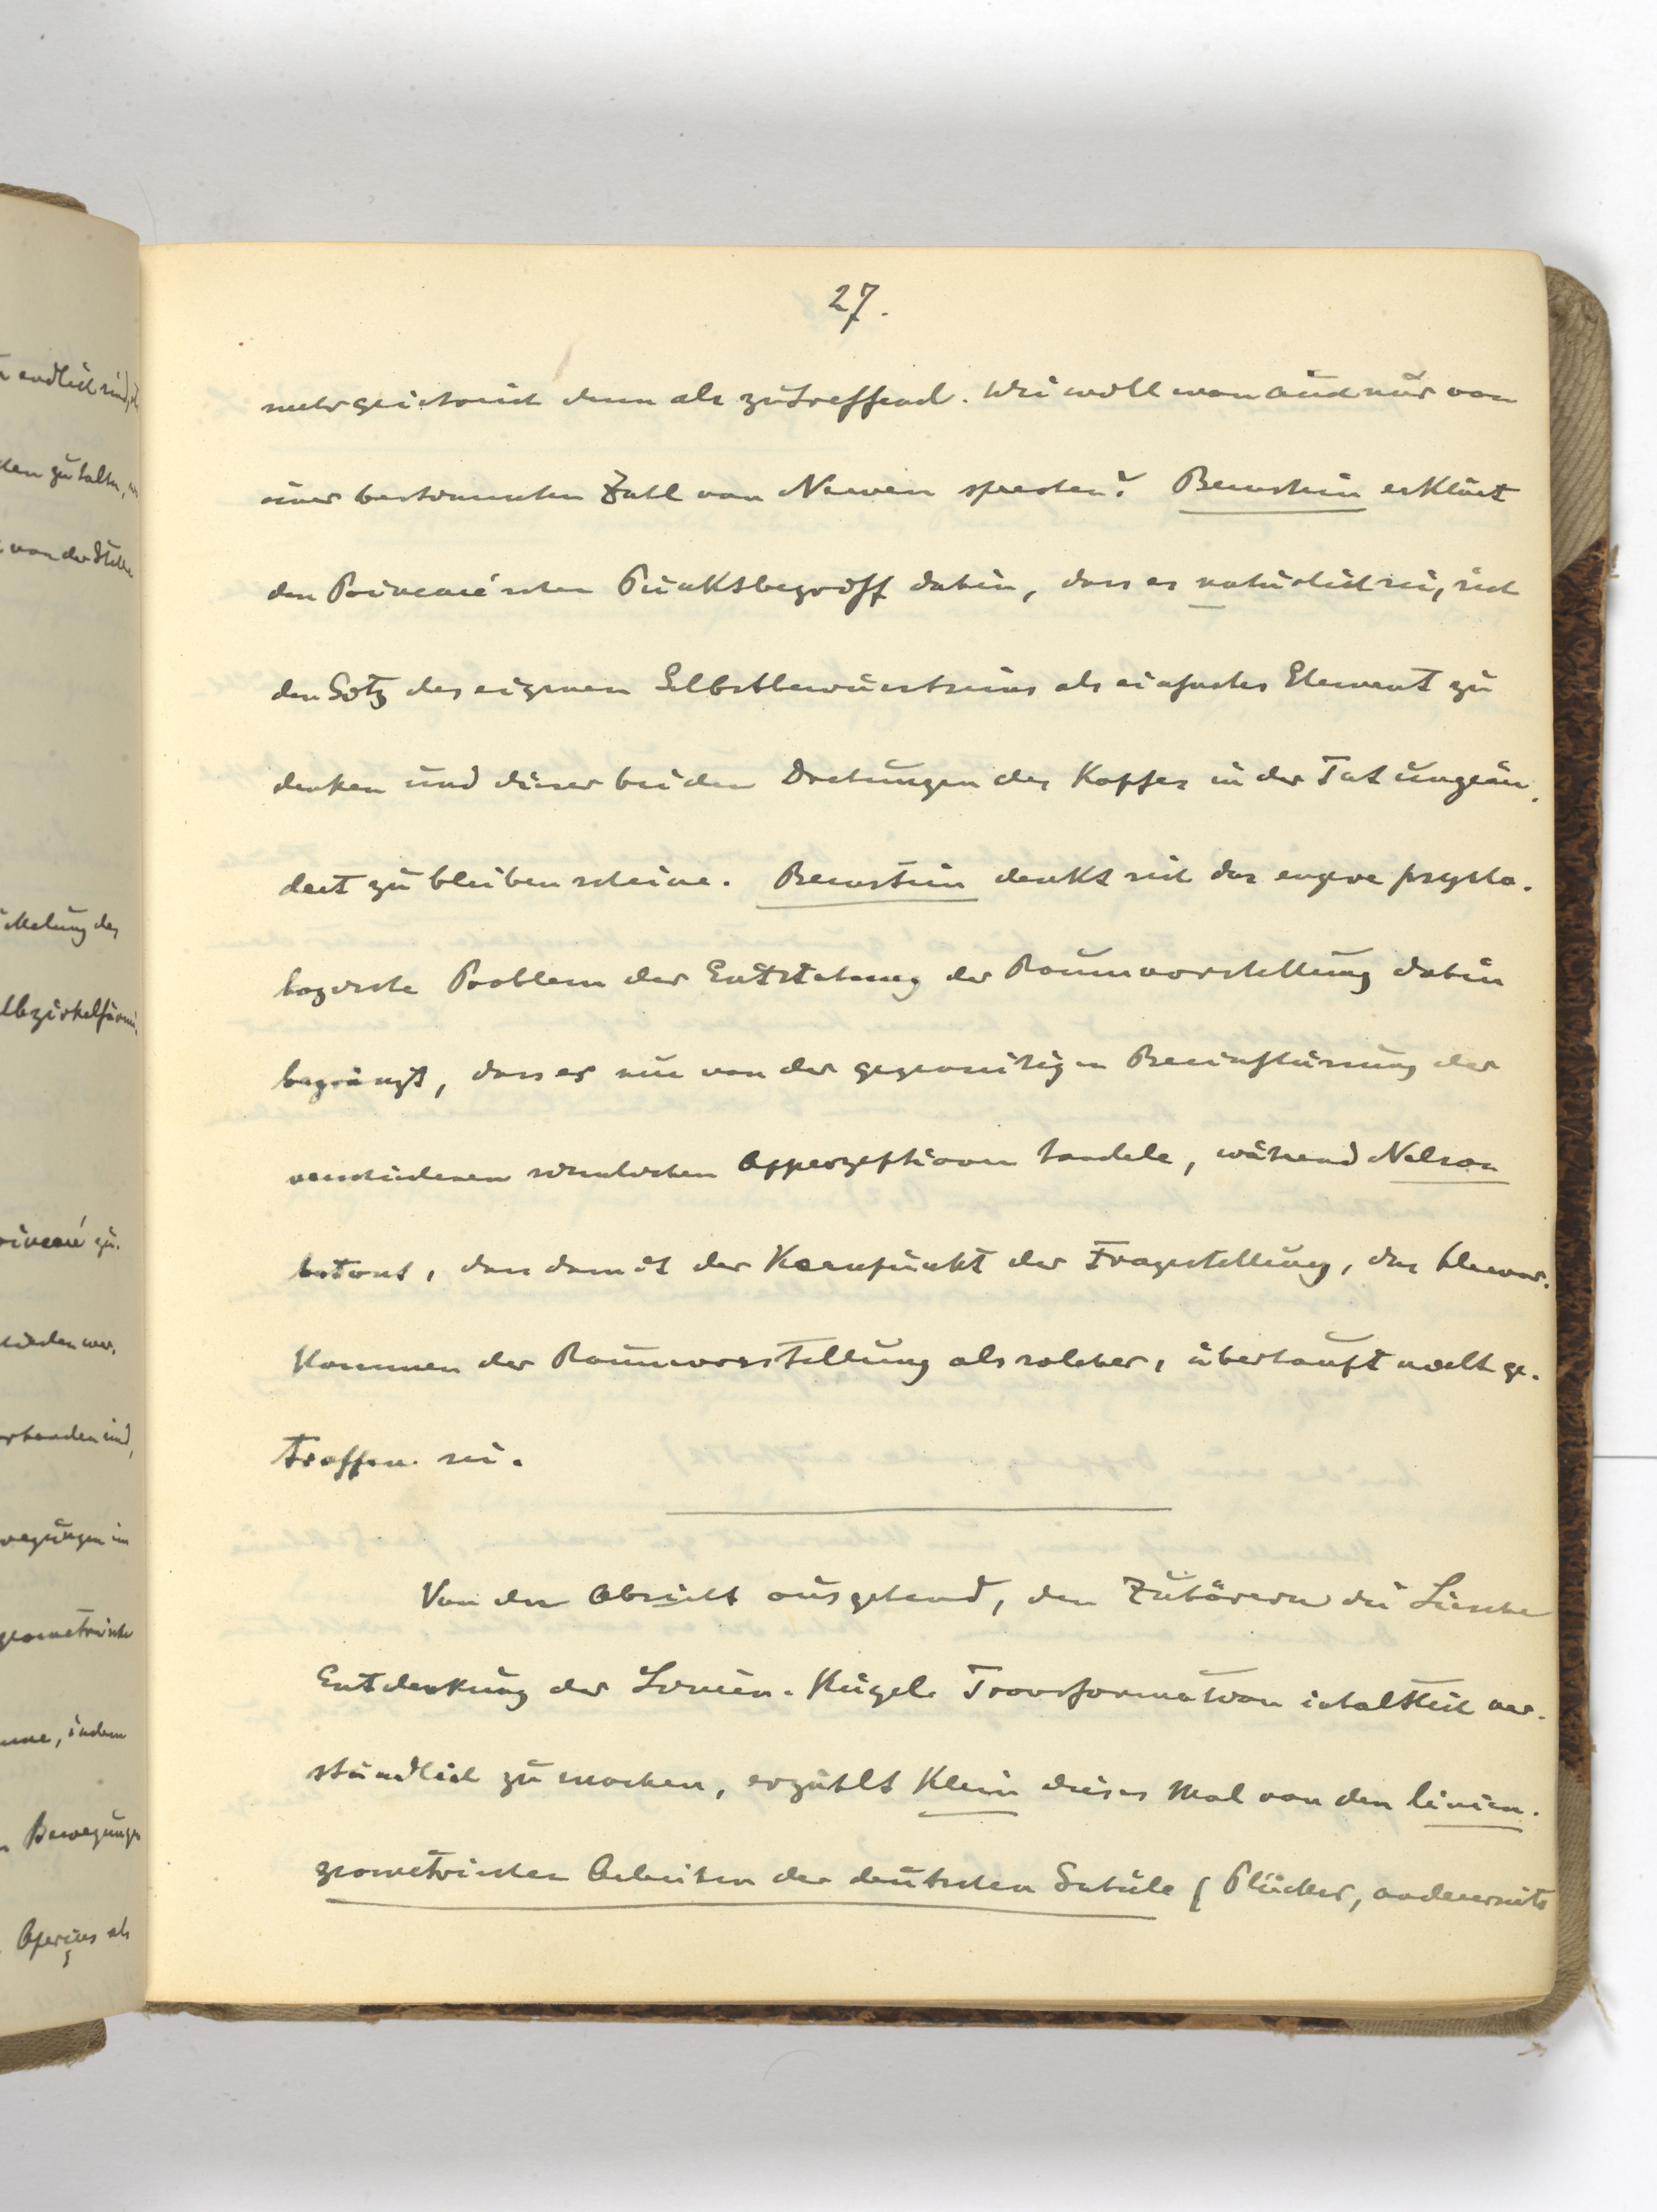 27.
mehr geistreich denn als zutreffend. Wie woll man auch nur von
einer bestimmten Zahl von Nerven sprechen? Bernstein erklärt
den Poincaré'schen Punktsbegriff dahin, dass es natürlich sei, sich
den Sitz des eigenen Selbstbewusstseins als einfaches Element zu
denken und dieser bei den Drehungen des Kopfes in der Tat ungeän-
dert zu bleiben scheine. Bernstein denkt sich das engere psycho-
logische Problem der Entstehung der Raumvorstellung dahin
begränzt, dass es sich von der gegenseitigen Beeinflussung der
verschiedenen sinnlichen Apperzeptionen handele, während Nelson
betont, dass damit der Kernpunkt der Fragestellung, das
kommen der Raumvorstellung als solcher, überhaupt nicht ge-
troffen sei.
Von der Absicht ausgehend, den Zuhörern die Liesche
Entdeckung der Linien-Kugel-Transformation inhaltlich ver-
ständlich zu machen, erzählt Klein dieses Mal von den linien-
geometrischen Arbeiten der deutschen Schule (Plücker, andererseits
endlich sind,
zu halten,
von der Stelle
Poincaré zu-
handen sind,
Bewegungen im
geometrische
indem
Bewegungen
Aperçus als